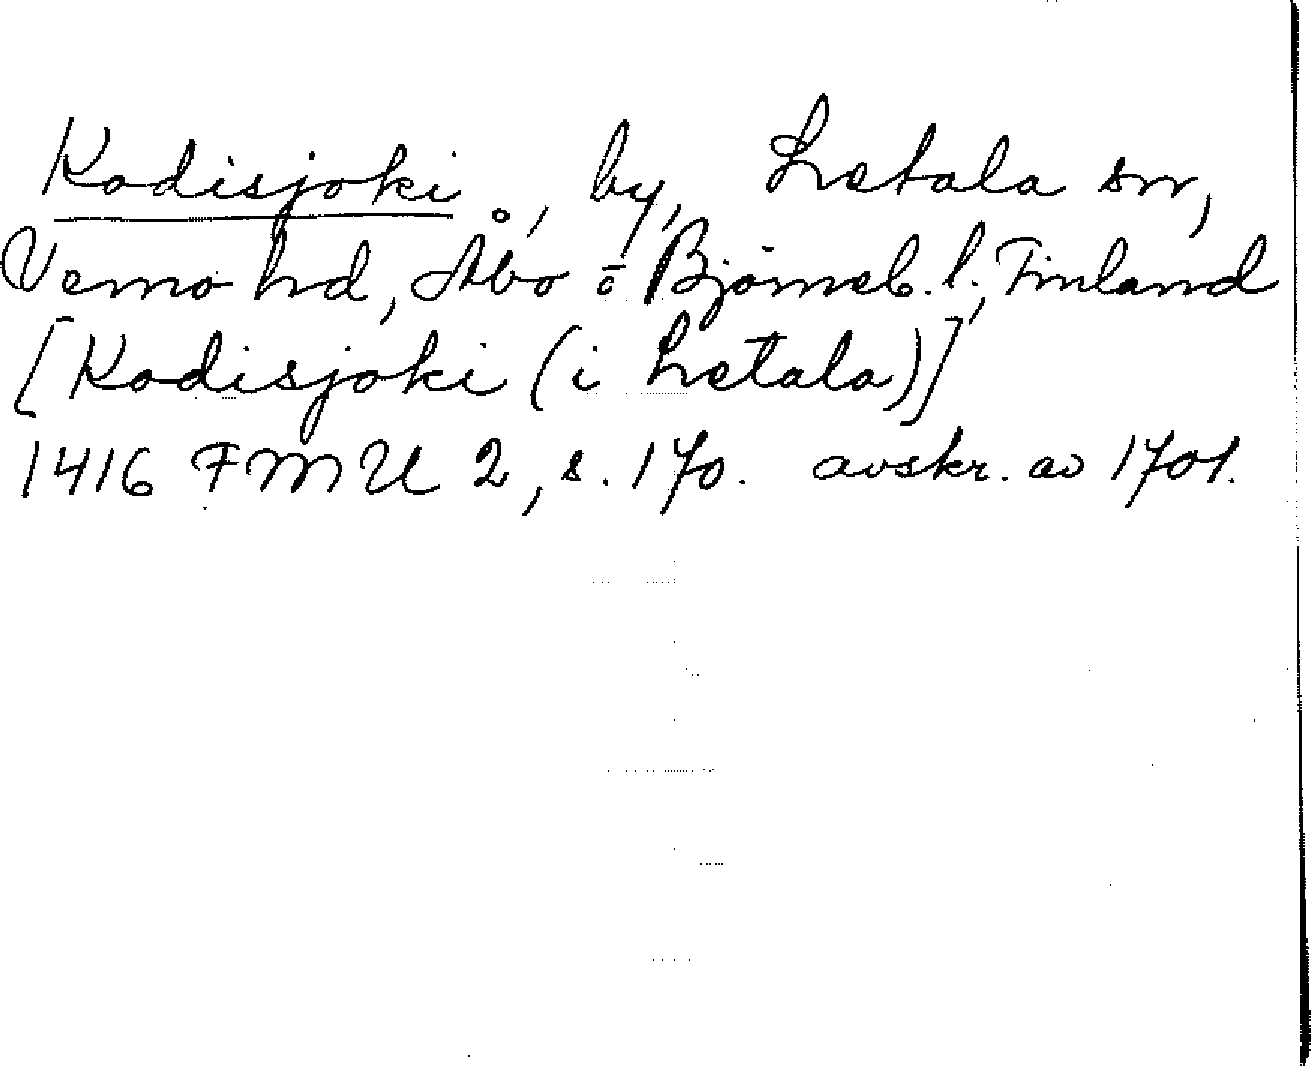 Kodisjoki, by, Letala sn,
Vemo hd, Åbo o Björneb. l., Finland
[Kodisjoki (i Letala)]
1416 FMU 2, s. 170. avskr. av 1701.